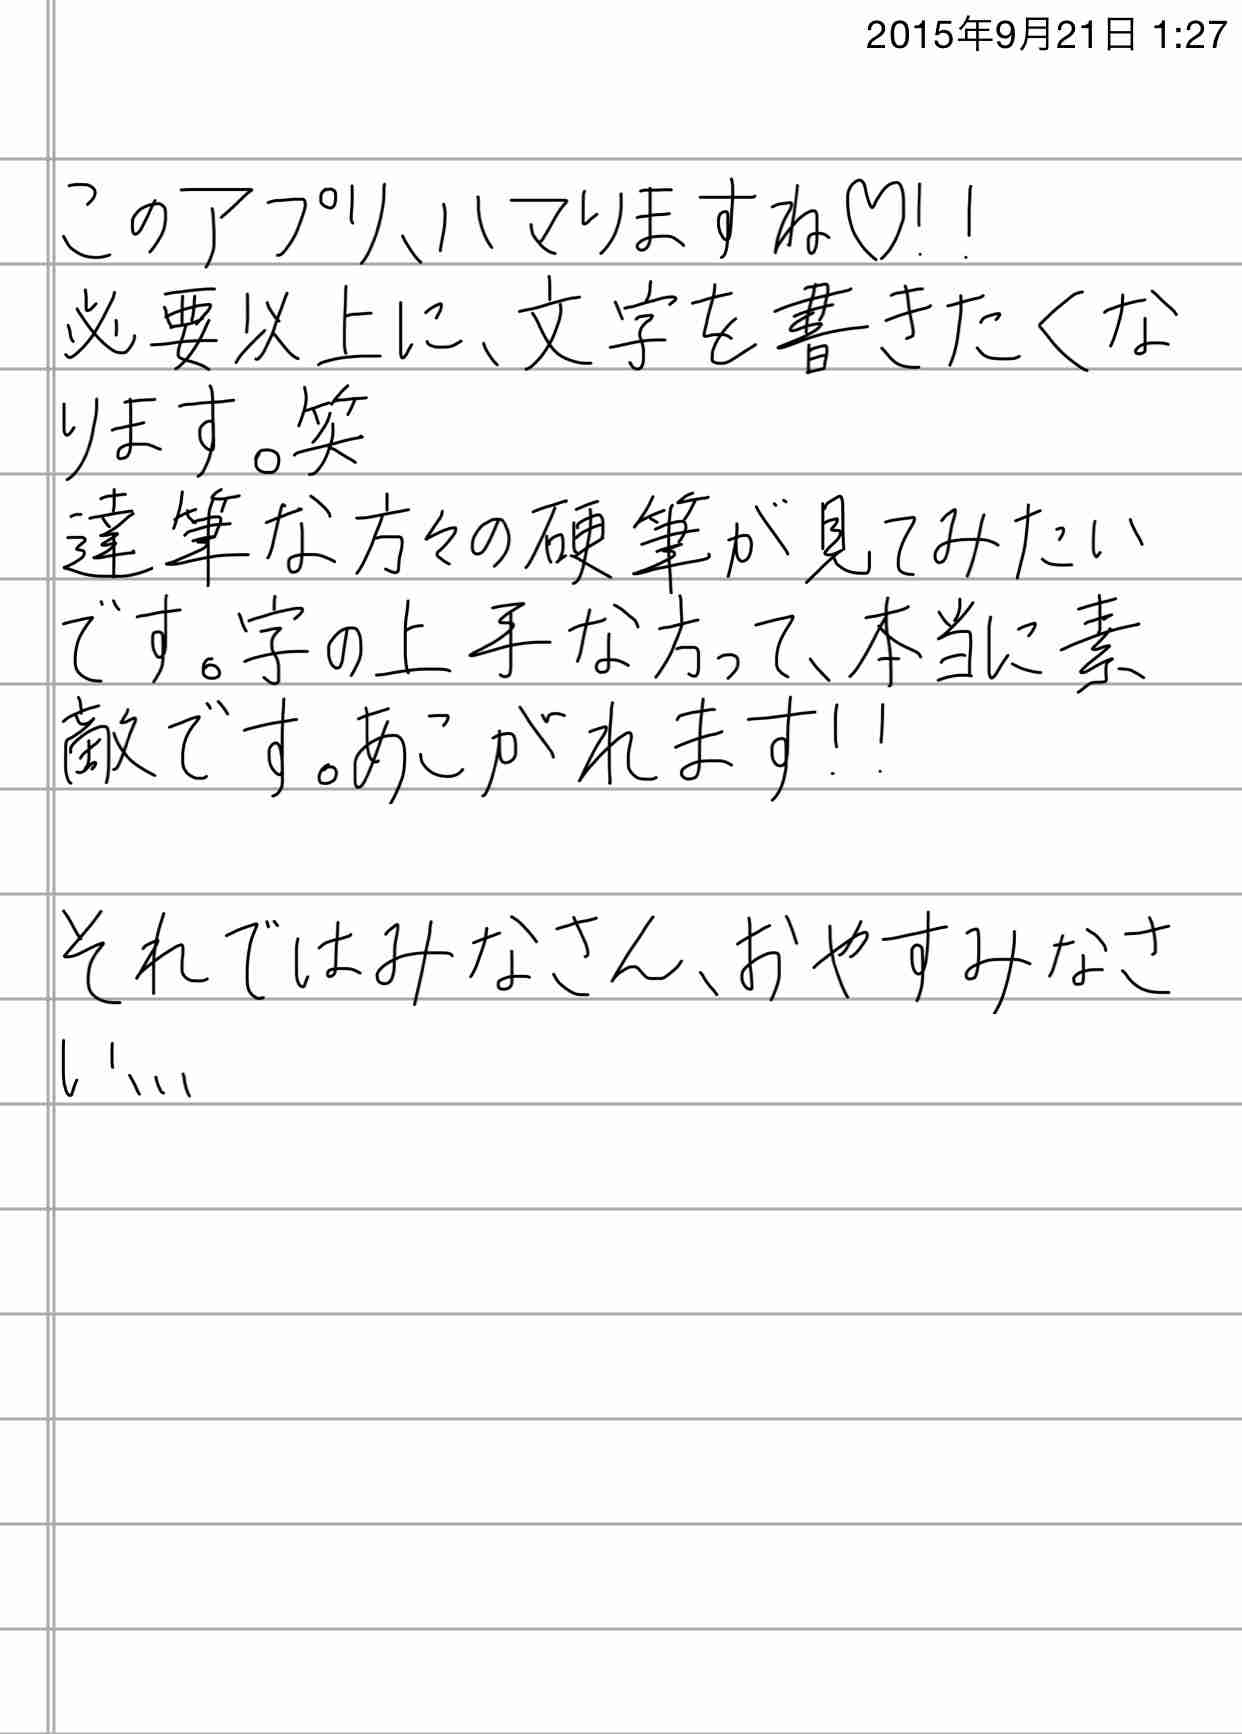 2015年9月21日 1:27
このアプリ、ハマりますね♡!!
必要以上に、文字を書きたくな
ります。笑
達筆な方々の硬筆が見てみたい
です。字の上手な方って、本当に素
敵です。あこがれます!!
それではみなさん、おやすみなさ
い、、、